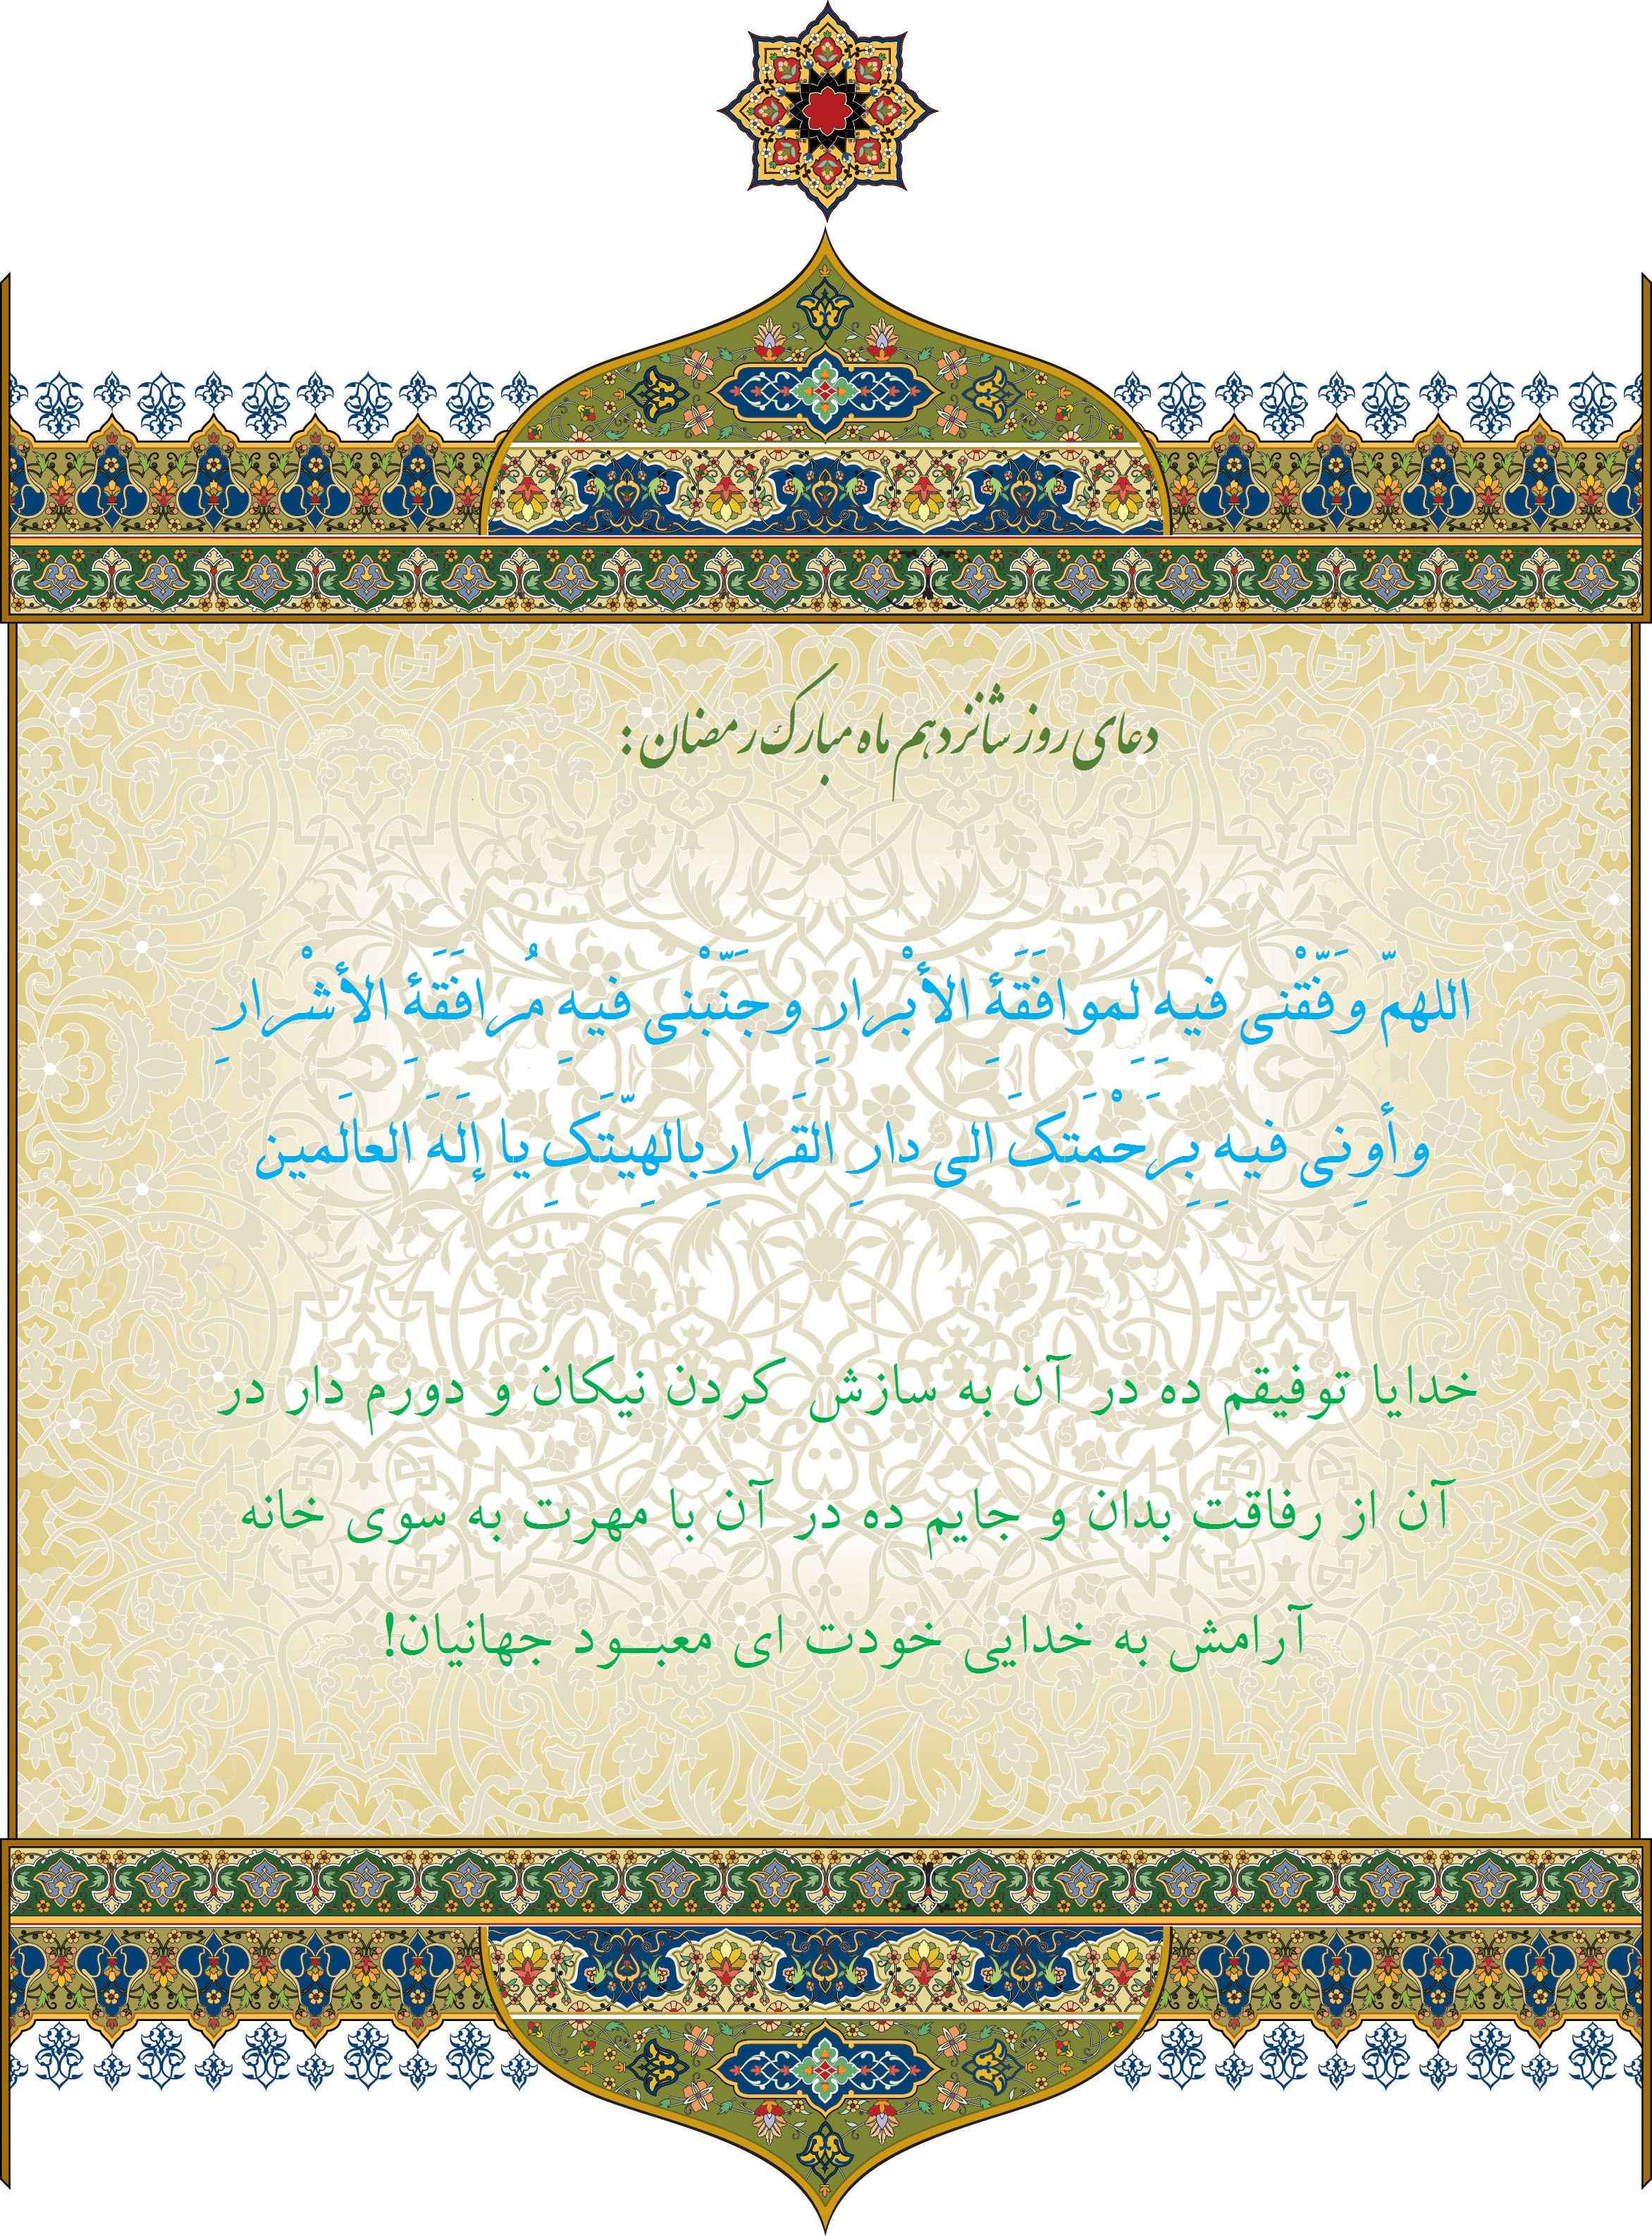 دعای روز شانزدهم ماه مبارک رمضان :
اللهمّ وَفّقْنی فیهِ لِموافَقَةِ الأبْرارِ وجَنّبْنی فیهِ مُرافَقَةِ الأشْرارِ
وأوِنی فیهِ بِرَحْمَتِکَ الی دارِ القَرارِ بالهِیّتَکِ یا إلَهَ العالَمین
خدایا توفیقم ده در آن به سازش کردن نیکان و دورم دار در
آن از رفاقت بدان و جایم ده در آن با مهرت به سوی خانه
آرامش به خدایی خودت ای معبـــود جهانیان!